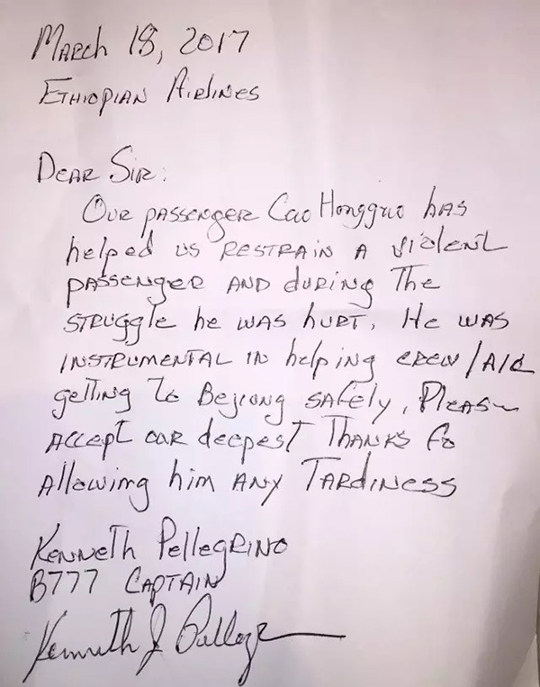 March 18, 2017
Ethiopian Airlines
Dear Sir:
Our passenger Cao Hongguo has
helped us restrain a violent
passenger and during the
struggle he was hurt. He was
instrumental in helping crew/A/C
getting to Bejiong safely, Please
accept our deepest thanks fo
allowing him any tardiness
Kenneth Pellegrino
B777 Captain
Kenneth J Pellegr